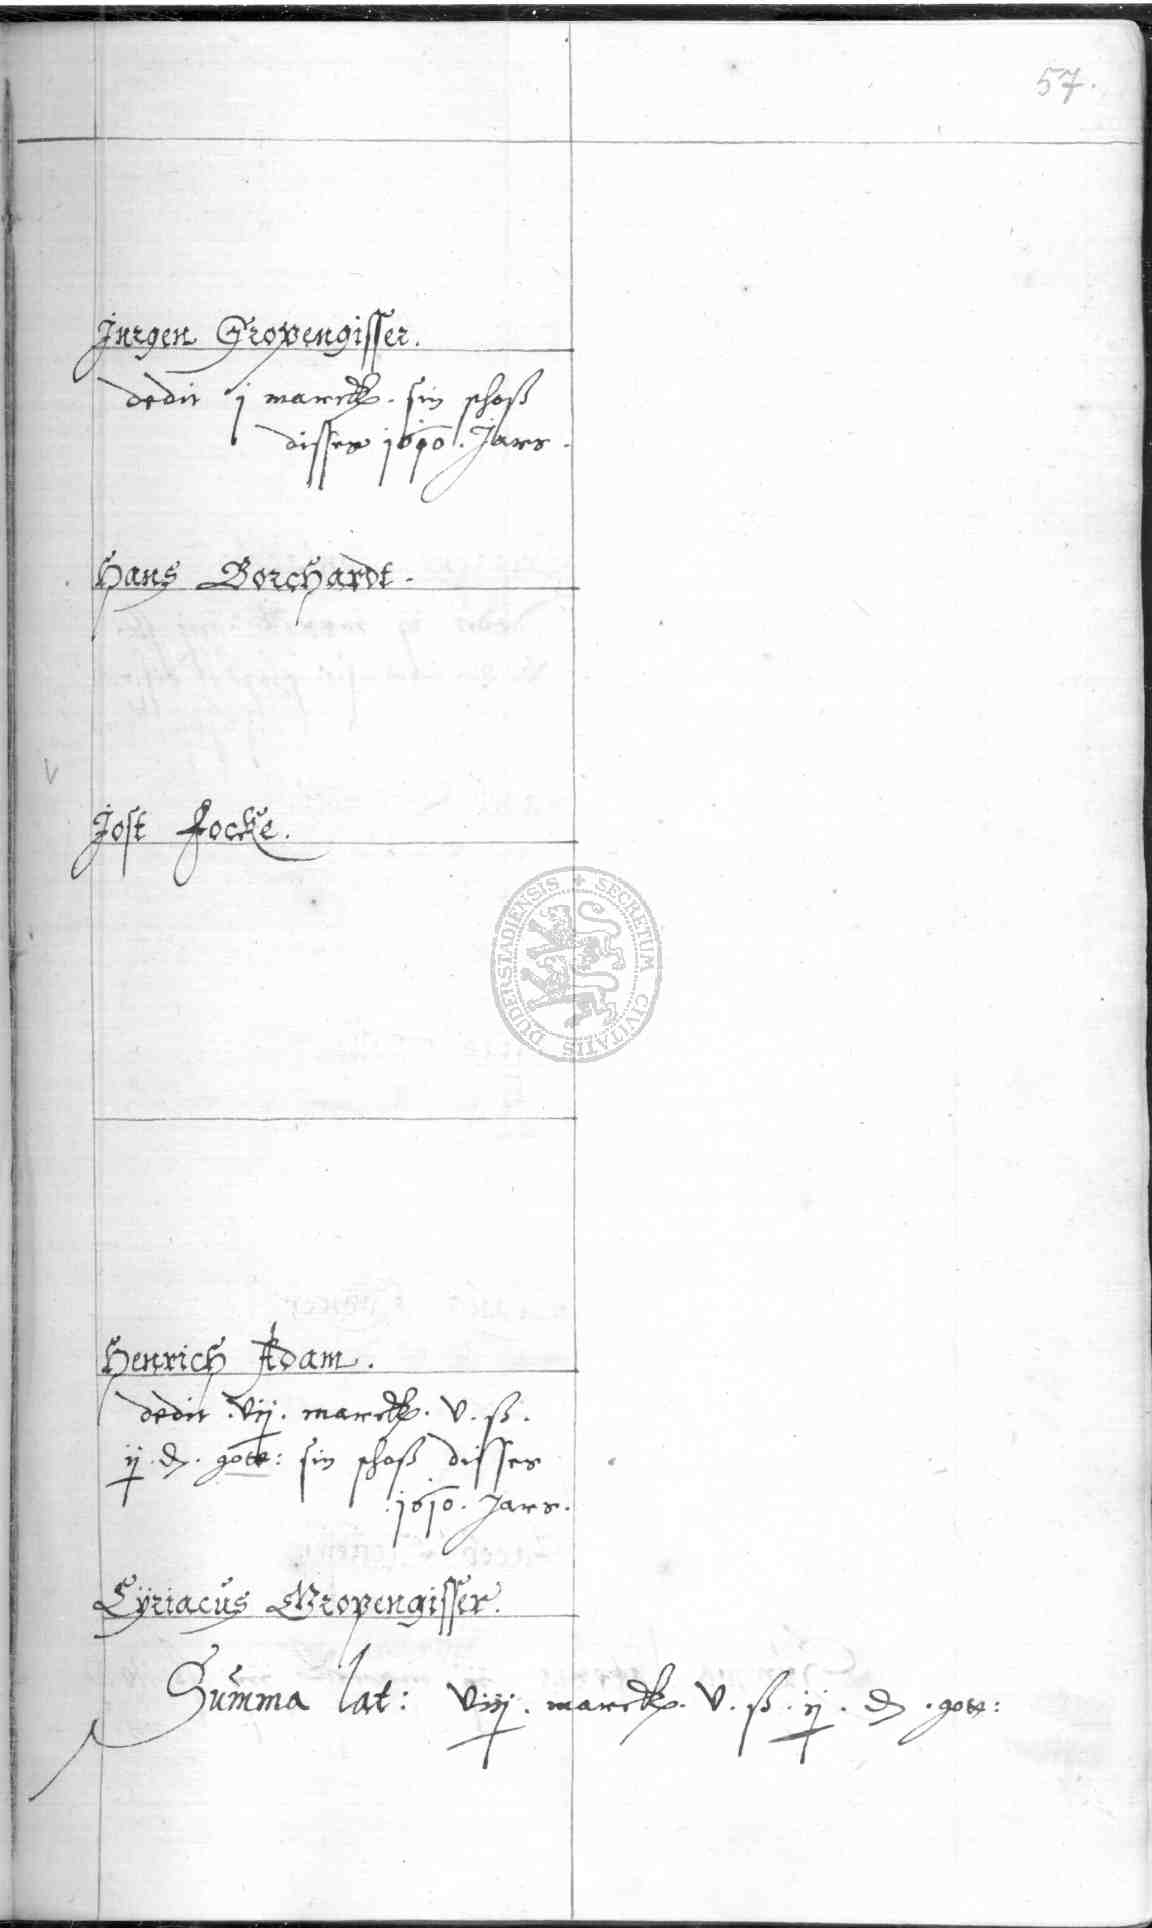 57.
Jurgen Gropengisser.
dedit j marck. sin schoß
disses 1610. Jars.
Hans Borchardt.
Jost Focke.
DUDERSTADIENSIS + SECRETUM CIVITATIS
Henrich Adam.
dedit vij. marck. v. ß.
ij. ₰. gott: sin schoß disses
1610. Jars.
Cÿriacus Gropengisser.
Summa lat: viij. marck. v. ß. ij. ₰. gott: